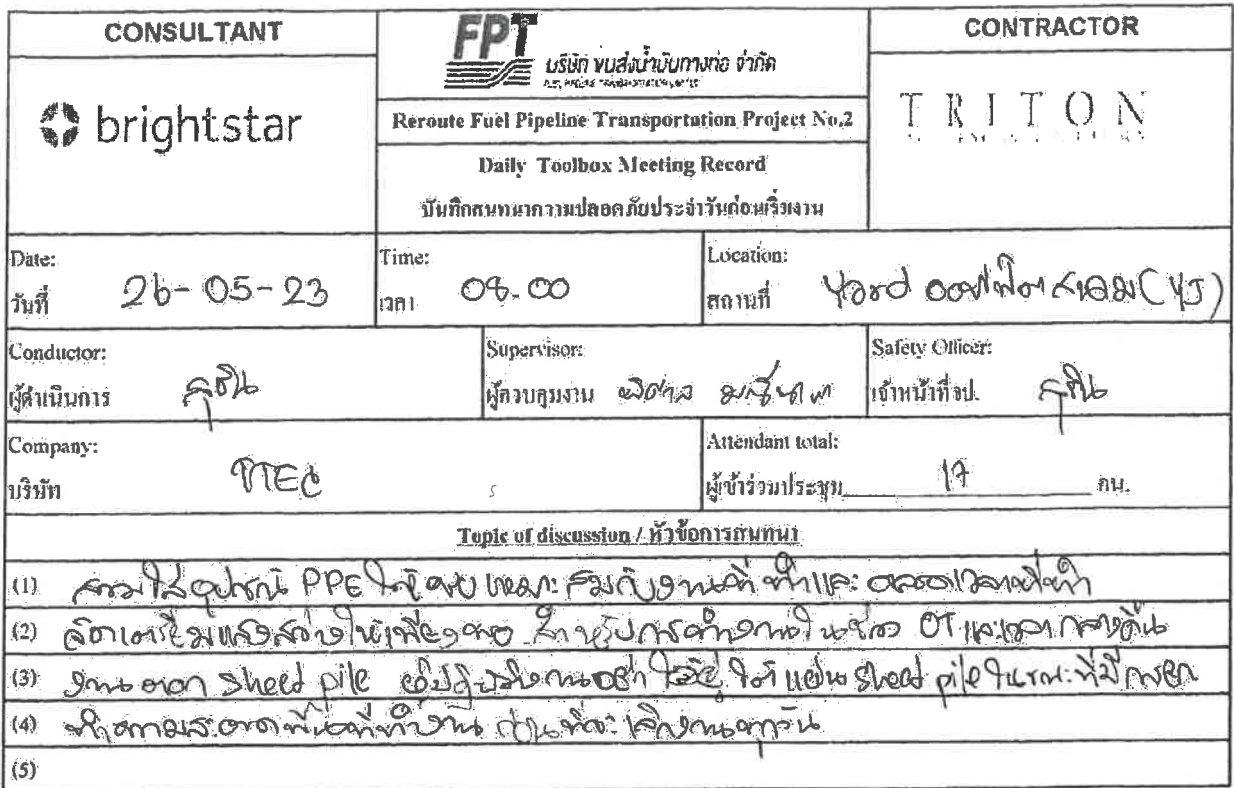 CONSULTANT
brightstar
FPT
บริษัท ขนส่งน้ำมันทางท่อ จำกัด
Reroute Fuel Pipeline Transportation Project No.2
Daily Toolbox Meeting Record
บันทึกสนทนาความปลอดภัยประจำวันก่อนเริ่มงาน
CONTRACTOR
TRITON
Date:
วันที่ 26-05-23
Time:
เวลา 08.00
Location:
สถานที่ Yard (YJ)
Conductor:
ผู้ดำเนินการ สุชิน
Supervisor:
ผู้ควบคุมงาน
Safety Officer:
เจ้าหน้าที่ จป. สุชิน
Company:
บริษัท PTEC
Attendant total:
ผู้เข้าร่วมประชุม 17 คน.
Topic of discussion / หัวข้อการสนทนา
(1) สวมใส่อุปกรณ์ PPE ให้ครบ เหมาะสมกับงานที่ทำและตลอดเวลาที่ทำ
(2) จัดเตรียมแสงสว่างให้เพียงพอ สำหรับการทำงานในช่วง OT และเวลากลางคืน
(3) งานตอก sheet pile ผู้ปฏิบัติงานอย่า ใต้แผ่น sheet pile ในขณะที่มีการยก
(4) ทำความสะอาดพื้นที่ทำงาน ก่อนที่จะเลิกงานทุกวัน
(5)